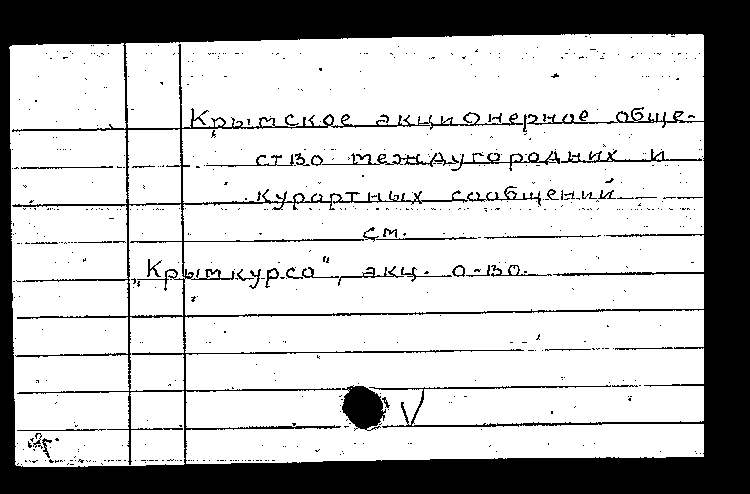 Крымское акционерное обще-
ство междугородних и
курортных сообщений
см.
„Крымкурсо", акц. о-во.
V